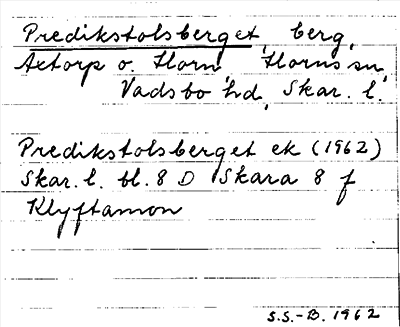 Predikstolsberget, berg,
Axtorp o. Horn, Horns sn,
Vadsbo hd, Skar. l.
Predikstolsberget ek (1962)
Skar. l. bl. 8 D Skara 8 f
Klyftamon
S.S.-B. 1962